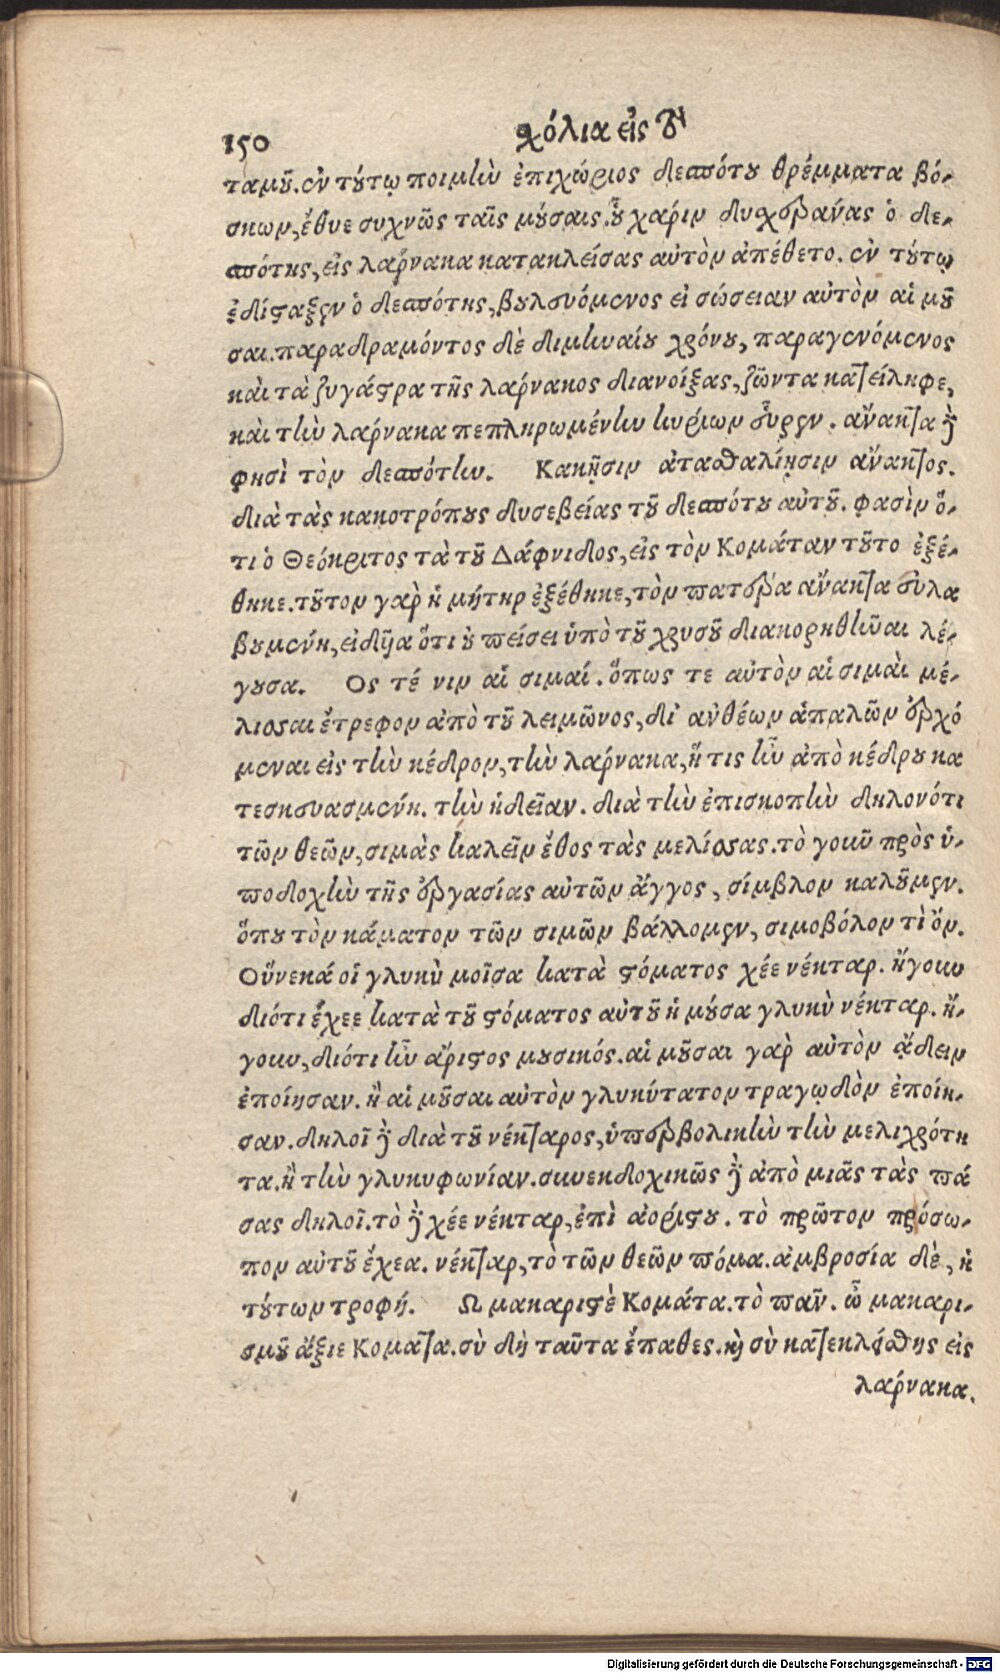 150 σχόλια εἰς τὴν
ταμοῦ. ἐν τούτῳ ποιμὴν ἐπιχώριος δεσπότου θρέμματα βό-
σκων, ἔθυε συχνῶς ταῖς μούσαις. οὗ χάριν δυσχεράνας ὁ δε-
σπότης, εἰς λάρνακα κατακλείσας αὐτὸν ἀπέθετο. ἐν τούτῳ
ἐδίσταξεν ὁ δεσπότης, βουλευόμενος εἰ σώσειαν αὐτὸν αἱ μοῦ
σαι. παραδραμόντος δὲ διμηναίου χρόνου, παραγενόμενος
καὶ τὰ ζυγάστρα τῆς λάρνακος διανοίξας, ζῶντα κατείληφε,
καὶ τὴν λάρνακα πεπληρωμένην κηρίων εὗρεν. ἄνακτα δὲ
φησὶ τὸν δεσπότην. Κακῇσιν ἀτασθαλίῃσιν ἄνακτος.
διὰ τὰς κακοτρόπους δυσεβείας τοῦ δεσπότου αὐτοῦ. φασὶν ὅ-
τι ὁ Θεόκριτος τὰ τοῦ Δάφνιδος, εἰς τὸν Κομάταν τοῦτο ἐξέ-
θηκε. τοῦτον γὰρ ἡ μήτηρ ἐξέθηκε, τὸν πατέρα ἄνακτα εὐλα
βουμένη, εἰδυῖα ὅτι οὐ πείσει ὑπὸ τοῦ χρυσοῦ διακορηθῆναι λέ-
γουσα. Ος τέ νιν αἱ σιμαί. ὅπως τε αὐτὸν αἱ σιμαὶ μέ-
λισσαι ἔτρεφον ἀπὸ τοῦ λειμῶνος, δι᾽ ἀνθέων ἁπαλῶν ἐρχό
μεναι εἰς τὴν κέδρον, τὴν λάρνακα, ἥ τις ἦν ἀπὸ κέδρου κα
τεσκευασμένη. τὴν ἡδεῖαν. διὰ τὴν ἐπισκοπὴν δηλονότι
τῶν θεῶν, σιμὰς καλεῖν ἔθος τὰς μελίσσας. τὸ γοῦν πρὸς ὑ-
ποδοχὴν τῆς ἐργασίας αὐτῶν ἄγγος, σίμβλον καλοῦμεν.
ὅπου τὸν κάματον τῶν σιμῶν βάλλομεν, σιμοβόλον τὶ ὄν.
Οὕνεκά οἱ γλυκὺ μοῖσα κατὰ στόματος χέε νέκταρ. ἤγουν
διότι ἔχεε κατὰ τοῦ στόματος αὐτοῦ ἡ μούσα γλυκὺ νέκταρ. ἤ-
γουν, διότι ἦν ἄριστος μουσικός. αἱ μοῦσαι γὰρ αὐτὸν ᾄδειν
ἐποίησαν. ἢ αἱ μοῦσαι αὐτὸν γλυκύτατον τραγῳδὸν ἐποίη-
σαν. δηλοῖ δὲ διὰ τοῦ νέκταρος, ὑπερβολικὴν τὴν μελιχρότη
τα. ἢ τὴν γλυκυφωνίαν. συνεκδοχικῶς δὲ ἀπὸ μιᾶς τὰς πά
σας δηλοῖ. τὸ δὲ χέε νέκταρ, ἐπὶ ἀορίστου. τὸ πρῶτον πρόσω-
πον αὐτοῦ ἔχεα. νέκταρ, τὸ τῶν θεῶν πόμα. ἀμβροσία δὲ, ἡ
τούτων τροφή. Ω μακαριστὲ Κομάτα. τὸ πᾶν. ὦ μακαρι-
σμοῦ ἄξιε Κομάτα. σὺ δὴ ταῦτα ἔπαθες. καὶ σὺ κατεκλάσθης εἰς
λάρνακα.